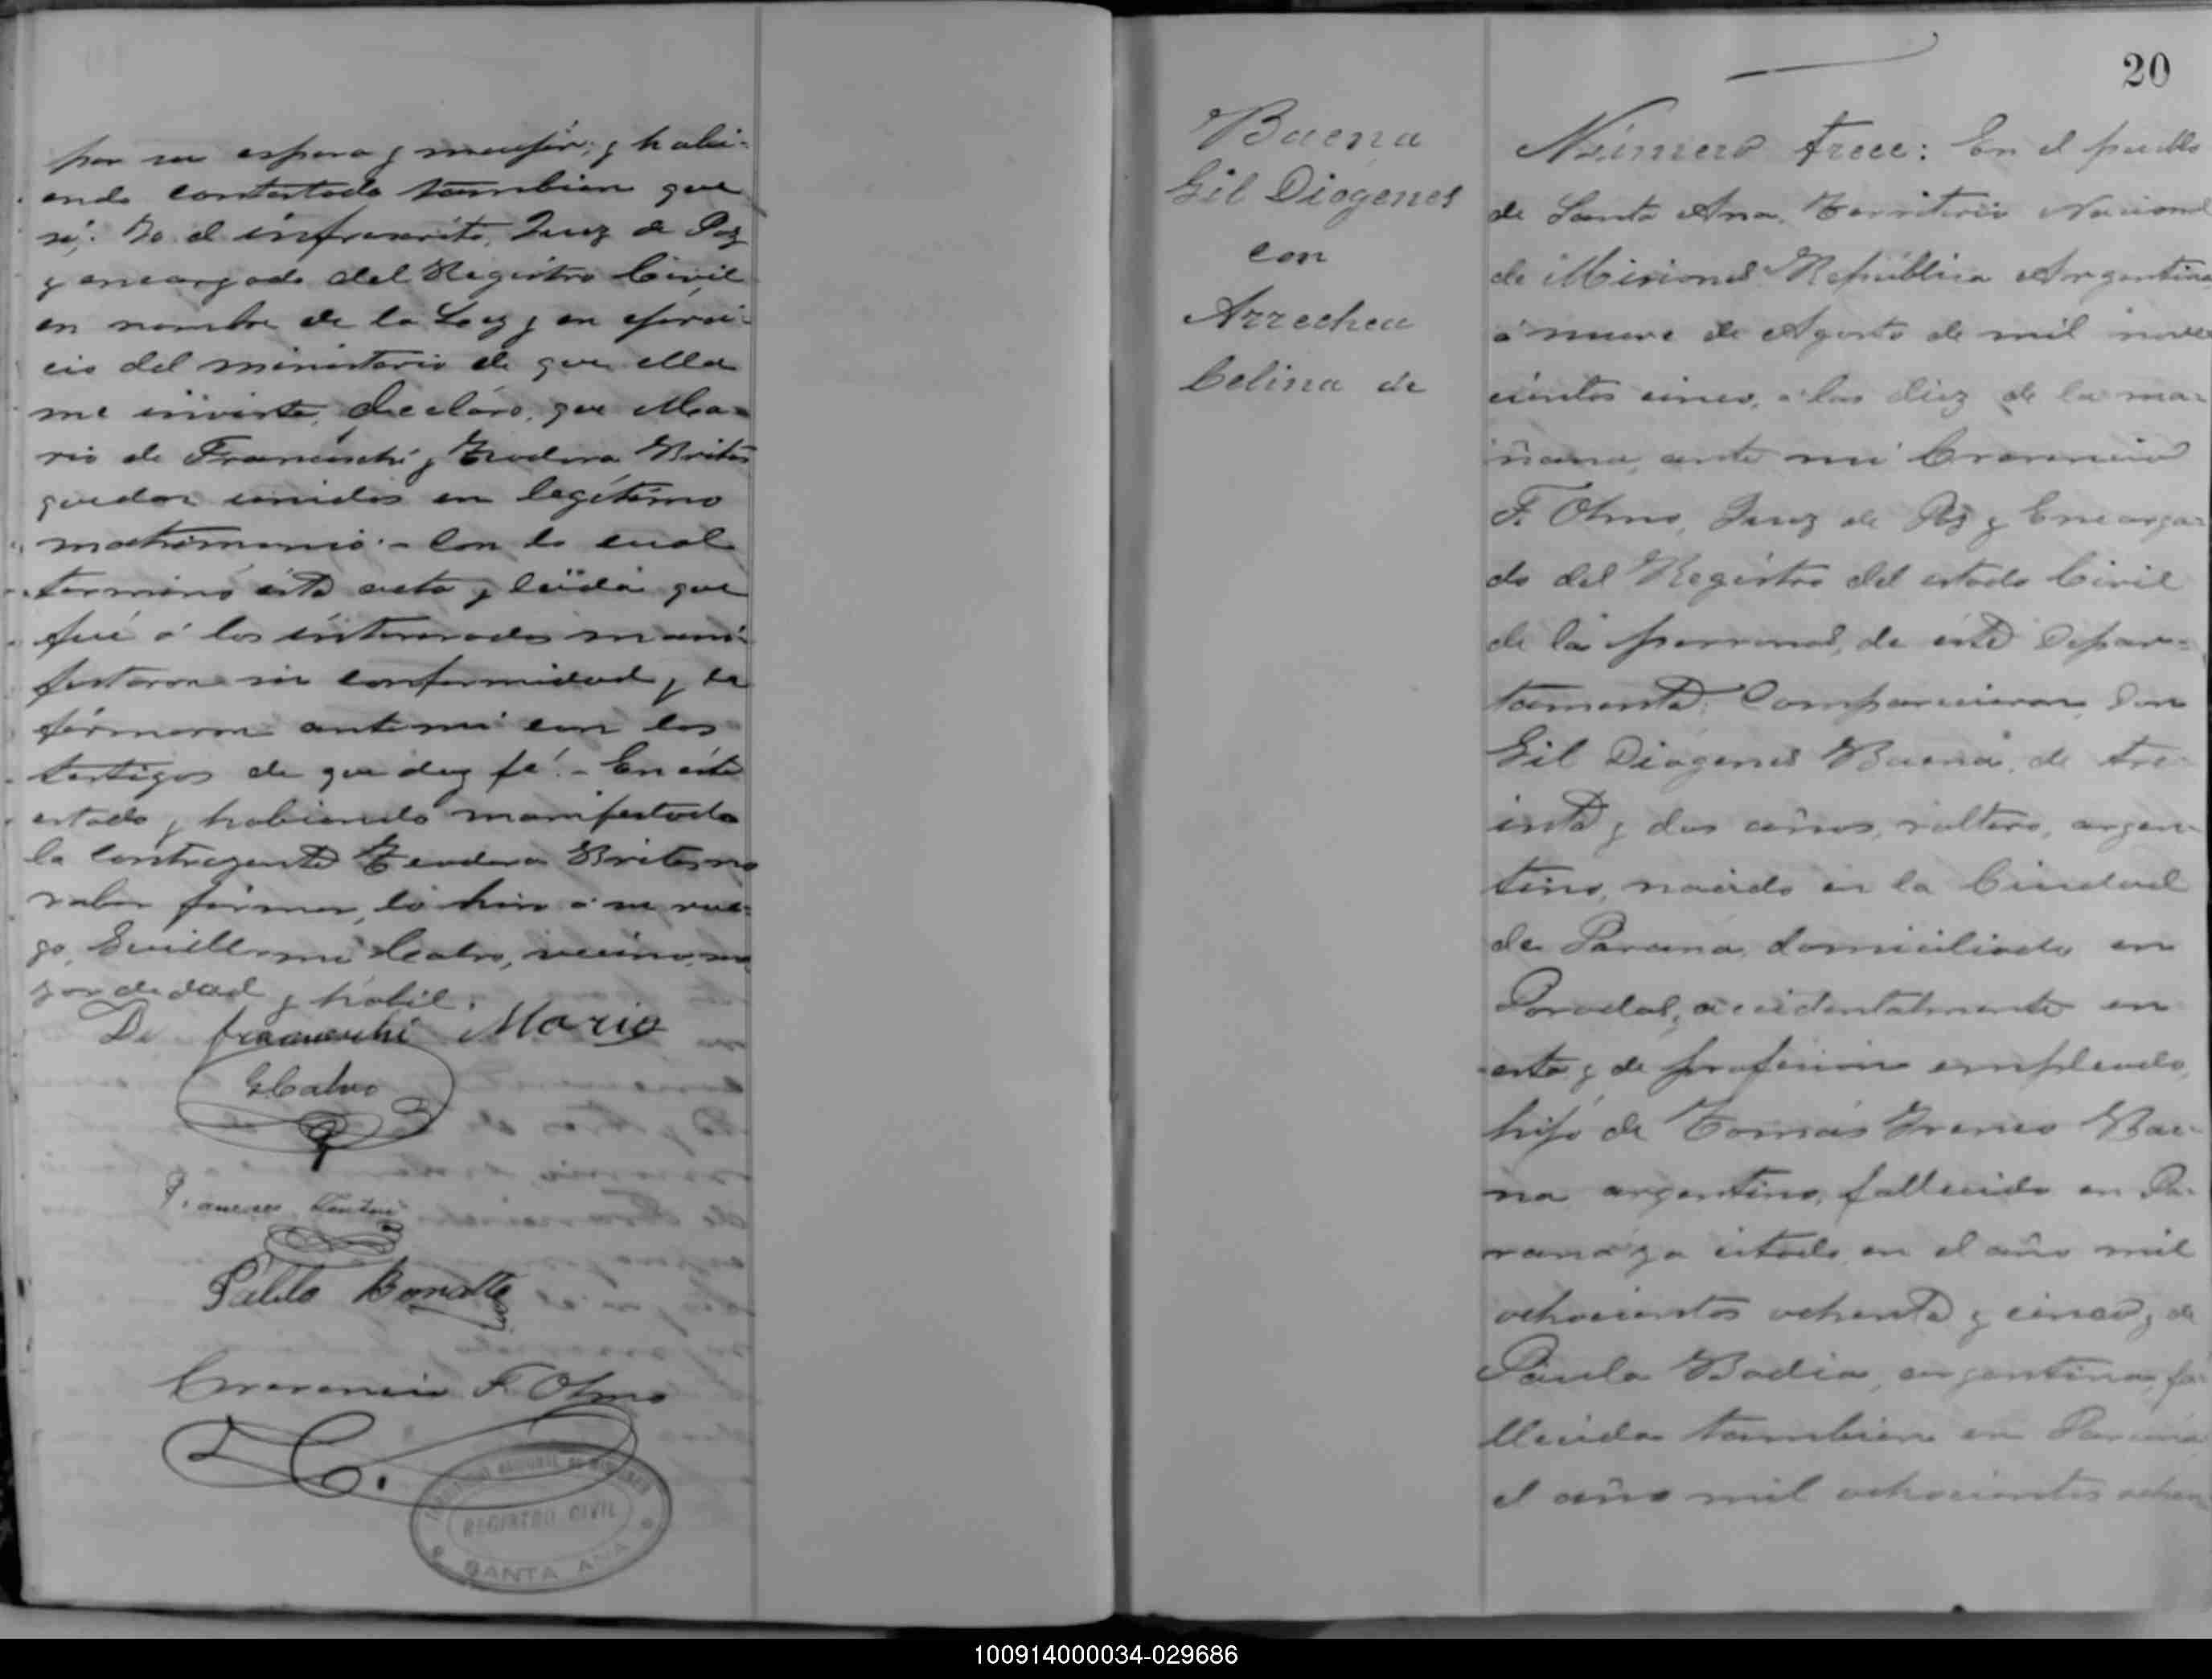 por su espora y mujer; y habi-
endo contestado tambien que
si. Yo el infrascrito, Juez de Paz
y encargado del Registro Civil
en nombre de la Ley y en ejerci-
cio del ministerio de que ella
me inviste, declaro, que Ma-
rio de Franceschi y Teodora Brites
quedan unidos en legítimo
matrimonio.- Con lo cual
terminó esta acta y leida que
fué á los interesados mani-
festaron su conformidad y la
firmaron ante mi con los
testigos de que doy fé.- En este
estado y habiendo manifestado
la contrayente Teodora Brites no
saber firmar, lo hizo á su rue-
go, Guillermo Calvo, vecino, ma
yor de edad y hábil.
De Franceschi Mario
GCalvo
Pablo Bonatto
Crecencio F. Olmo
REGISTRO CIVIL
SANTA ANA
Baena
Gil Diogenes
con
Arrechea
Celina de
20
Número trece: En el pueblo
de Santa Ana, Territorio Nacional
de Misiones República Argentina
á nueve de Agosto de mil nove
cientos cinco, á las diez de la ma-
ñana, ante mi Crecencio
F. Olmo, Juez de Paz y Encarga-
do del Registro del estado Civil
de las personas, de este Depar-
tamento: Comparecieron Don
Gil Diógenes Baena, de tre-
inta y dos años, soltero, argen-
tino, nacido en la Ciudad
de Paraná, domiciliado en
Posadas, accidentalmente en
esta y de profesion empleado,
hijo de Tomás Ireneo Bae-
na argentino, fallecido en Pa-
raná ya citado en el año mil
ochocientos ochenta y cinco y de
Paula Badia, argentina, fa-
llecida tambien en Paraná
el año mil ochocientos ochen